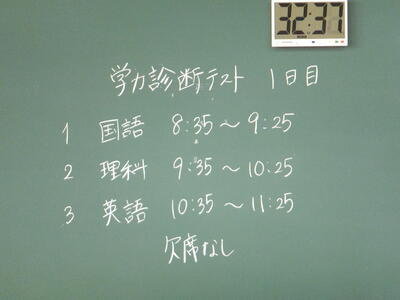 32:37
学力診断テスト 1日目
1 国語 8:35～9:25
2 理科 9:35～10:25
3 英語 10:35～11:25
欠席なし